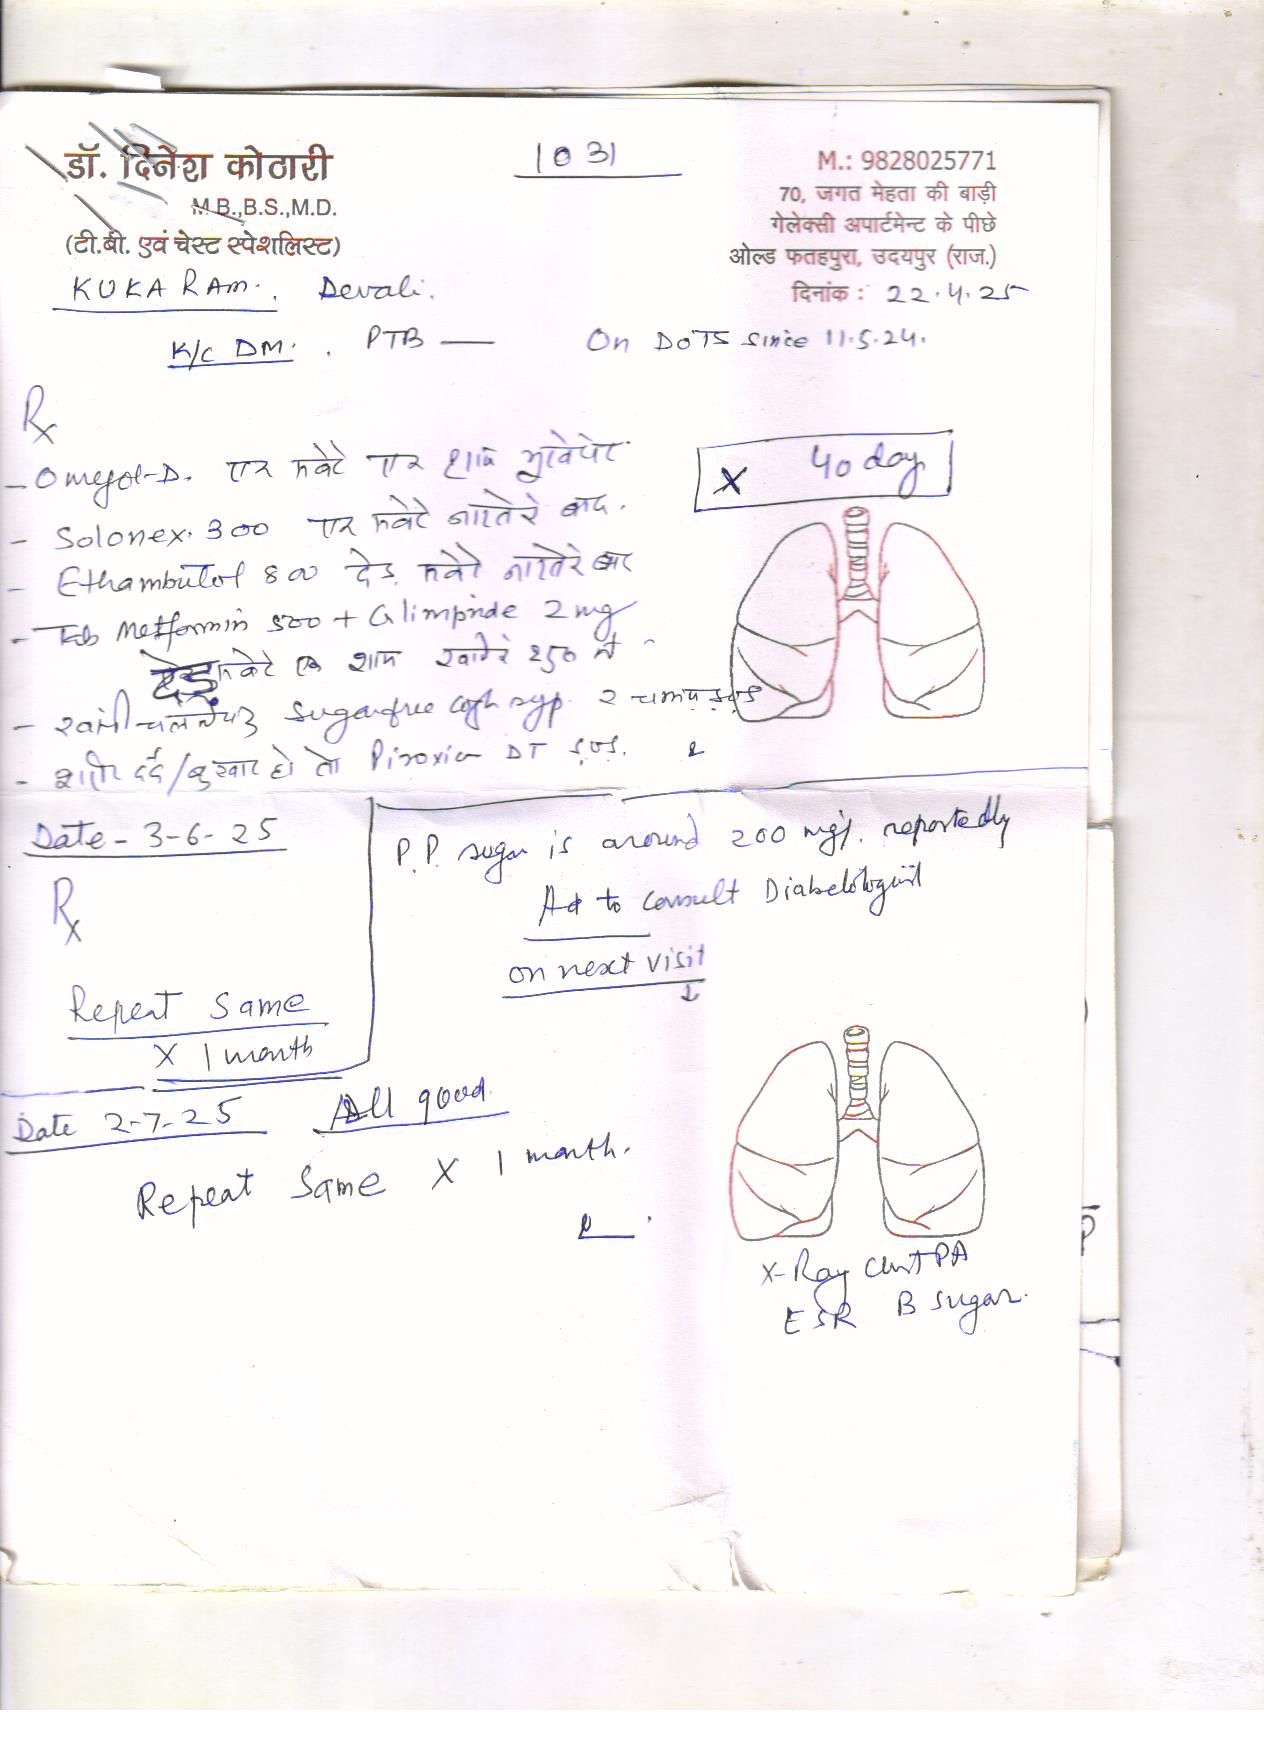 डॉ. दिनेश कोठारी
M.B.,B.S.,M.D.
(टी.बी. एवं चेस्ट स्पेशलिस्ट)
1031
M.: 9828025771
70, जगत मेहता की बाड़ी
गेलेक्सी अपार्टमेन्ट के पीछे
ओल्ड फतहपुरा, उदयपुर (राज.)
दिनांक : 22.4.25
KUKA RAM. Devali.
K/C DM. PTB — On DOTS since 11.5.24.
Rx
- Omegol-D. एक सवेरे एक शाम भूखे पेट
X 40 day
- Solonex 300 एक सवेरे नाश्ते के बाद.
- Ethambutol 800 डेढ़ सवेरे नाश्ते के बाद
- Tab Metformin 500 + Glimpride 2 mg
सवेरे एक शाम खाने से
- खांसी चलने पर Sugarfree cogh syp. 2 चम्मच SOS
- शरीर दर्द/बुखार हो तो Piroxicam DT S.O.S.
Date - 3-6-25
Rx
Repeat Same
X 1 month
P.P. sugar is around 200 mg%. reportedly
Ad to consult Diabetologist
on next visit
Date 2-7-25 All good.
Repeat Same X 1 month.
X-Ray Chest PA
ESR B sugar.